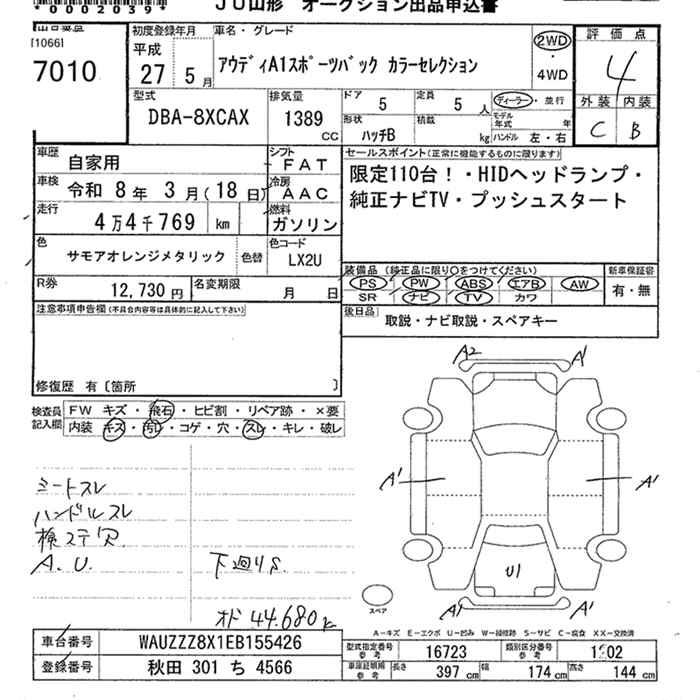 *0002039*
JU山形 オークション出品申込書
出品番号
[1066]
7010
初度登録年月
平成
27年 5月
車名・グレード
アウディA1スポーツバック カラーセレクション
2WD
・
4WD
評価点
4
外装 内装
C B
型式
DBA-8XCAX
排気量
1389
CC
ドア
5
定員
5人
ディーラー・並行
形状
ハッチB
積載
kg
モデル年式
年
ハンドル 左・右
車歴
自家用
シフト
FAT
車検
令和 8年 3月(18日)
冷房
AAC
走行
4万4千769 km
燃料
ガソリン
色
サモアオレンジメタリック
色替
色コード
LX2U
R券
12,730円
名変期限
月 日
セールスポイント(正常に機能するものに限ります)
限定110台!・HIDヘッドランプ・
純正ナビTV・プッシュスタート
装備品(純正品に限り○をつけてください)
PS PW ABS エアB AW
SR ナビ TV カワ
新車保証書
有・無
後日品
取説・ナビ取説・スペアキー
注意事項申告欄(不具合内容等は具体的に記入して下さい)
修復歴 有〔箇所 〕
検査員
記入欄
FW キズ・飛石・ヒビ割・リペア跡・×要
内装 キズ・汚レ・コゲ・穴・スレ・キレ・破レ
シートスレ
ハンドルスレ
検ステ穴
A.U.
下廻りS
オド 44.680k
A2 A1
A1 A1
U1
A1 A1
スペア
A-キズ E-エクボ U-凹み W-補修跡 S-サビ C-腐食 XX-交換済
車台番号
WAUZZZ8X1EB155426
登録番号
秋田 301 ち 4566
型式指定番号
参考
16723
類別区分番号
参考
車庫証明用
参考
長さ
397 cm
幅
174 cm
高さ
144 cm